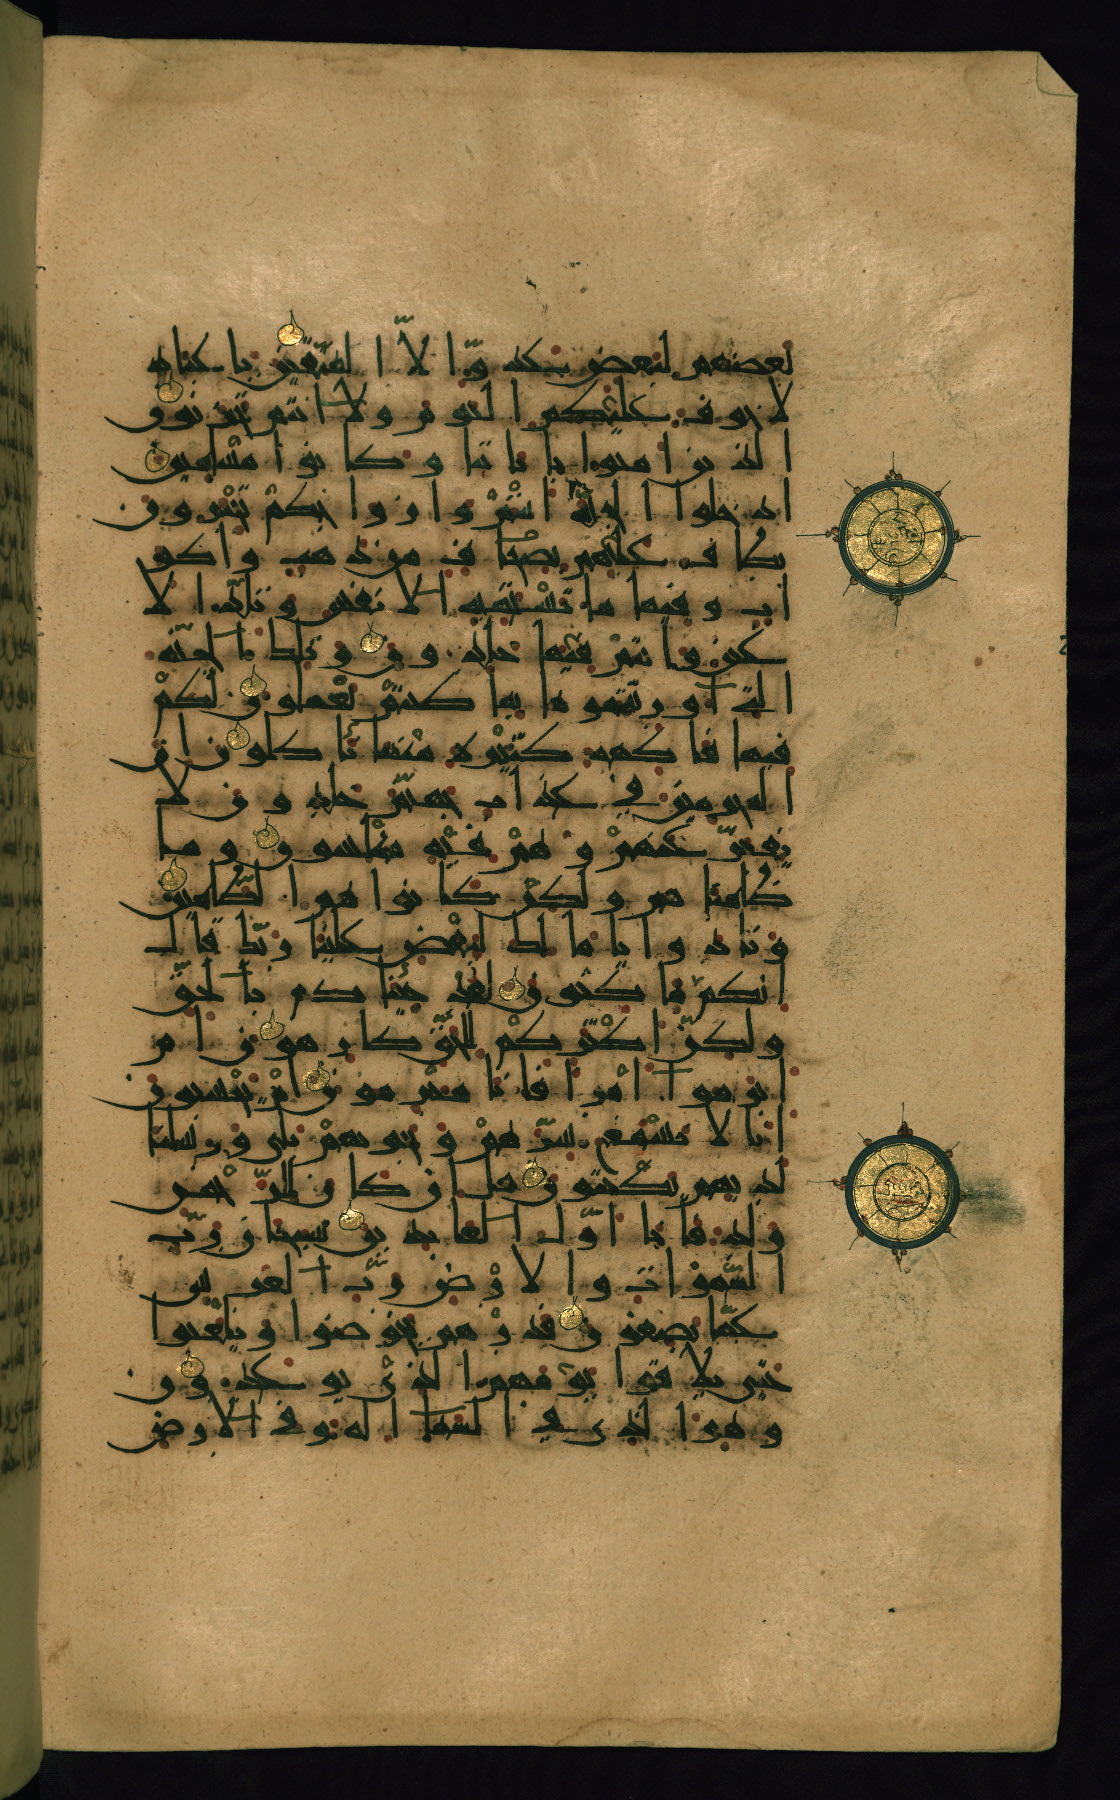 بعضهم لبعض عدوّ الّا المتّقين يا عباد
لا خوف عليكم اليوم ولا انتم تحزنون
الذين امنوا باياتنا وكانوا مسلمين
ادخلوا الجنّة انتم وازواجكم تحبرون
يطاف عليهم بصحاف من ذهب واكو
اب وفيها ما تشتهيه الانفس وتلذّ الا
عين وانتم فيها خالدون وتلك الجنّة
التي اورثتموها بما كنتم تعملون لكم
فيها فاكهة كثيرة منها تأكلون انّ
المجرمين في عذاب جهنّم خالدون لا
يفتّر عنهم وهم فيه مبلسون وما
ظلمناهم ولكن كانوا هم الظّالمين
ونادوا يا مالك ليقض علينا ربّك قال
انكم ماكثون لقد جئناكم بالحقّ
ولكنّ اكثركم للحقّ كارهون ام
ابرموا امرا فانا مبرمون ام يحسبون
انا لا نسمع سرّهم ونجويهم بلى ورسلنا
لديهم يكتبون قل ان كان للرّحمن
ولد فانا اوّل العابدين سبحان ربّ
السّموات والارض ربّ العرش
عمّا يصفون فذرهم يخوضوا ويلعبوا
حتّى يلاقوا يومهم الذي يوعدون
وهو الذي في السماء اله وفي الارض